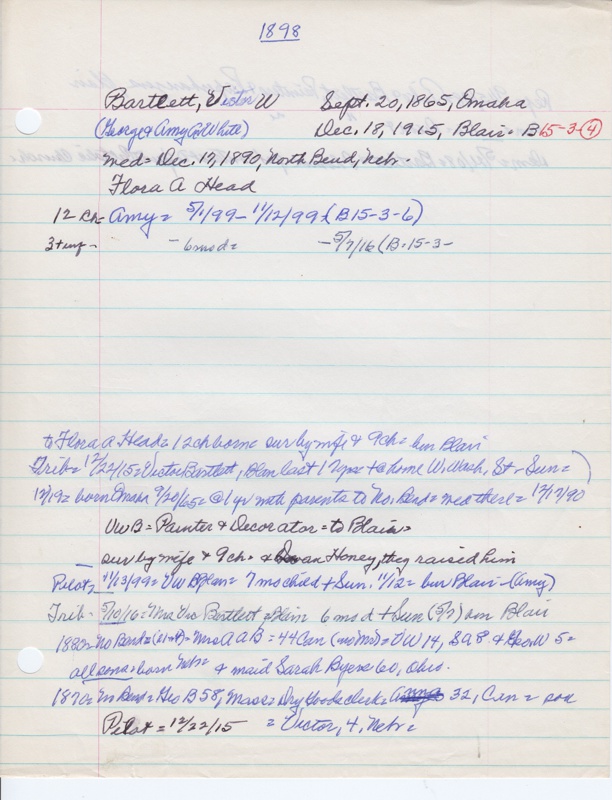 1898
Bartlett, Victor W Sept. 20, 1865, Omaha
(George & Amy A White) Dec. 18, 1915, Blair = B15-3-4
med = Dec. 17, 1890, North Bend, Nebr.
Flora A Head
12 ch = Amy = 5/1/99 - 11/12/99 (B15-3-6)
3 + inf - - 6 mo d = - 5/7/16 (B-15-3-
to Flora A Head = 12 ch born = sur by wife & 9 ch = bur Blair
Trib = 12/22/15 = Victor Bartlett, Blair last 17 yrs + @ home W. Wash. St - Sun =
12/19 = born Omaha 9/20/65 = @ 1 yr with parents to No. Bend = med there = 12/17/90
VWB = Painter & Decorator = to Blair =
sur by wife & 9 ch = & Honey, they raised him
Pilot = 11/13/99 = VWB Blair = 7 mo child + Sun. 11/12 = bur Blair - (Amy)
Trib - 5/10/16 = Mrs Vic Bartlett Blair 6 mo d + Sun (5/7) bur Blair
1880 = No Bend = = Mrs A A B = 44 Can = VW 14, S A 8 & Geo W 5 =
all sons = born Nebr = & maid Sarah Byers 60, Ohio.
1870 = No Bend = Geo B 58, Mass = Dry Goods clerk = 32, Can =
Pilot = 12/22/15 = Victor, 4, Nebr =